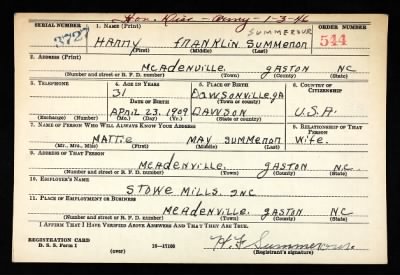 Hon. Disc - Army - 1-3-46
SERIAL NUMBER 1. NAME (Print) ORDER NUMBER
SUMMEROUR
3727 HARRY FRANKLIN SUMMEROUR 544
(First) (Middle) (Last)
2. ADDRESS (Print)
MCADENVILLE, GASTON NC
(Number and street or R. F. D. number) (Town) (County) (State)
3. TELEPHONE 4. AGE IN YEARS 5. PLACE OF BIRTH 6. COUNTRY OF CITIZENSHIP
31 DAWSONVILLE, GA
DATE OF BIRTH (Town or county)
APRIL 23, 1909 DAWSON U.S.A.
(Exchange) (Number) (Mo.) (Day) (Yr.) (State or country)
7. NAME OF PERSON WHO WILL ALWAYS KNOW YOUR ADDRESS 8. RELATIONSHIP OF THAT PERSON
MATTIE MAY SUMMEROUR WIFE.
(Mr., Mrs., Miss) (First) (Middle) (Last)
9. ADDRESS OF THAT PERSON
MCADENVILLE, GASTON NC.
(Number and street or R. F. D. number) (Town) (County) (State)
10. EMPLOYER'S NAME
STOWE MILLS. INC
11. PLACE OF EMPLOYMENT OR BUSINESS
MCADENVILLE, GASTON NC
(Number and street or R. F. D. number) (Town) (County) (State)
I AFFIRM THAT I HAVE VERIFIED ABOVE ANSWERS AND THAT THEY ARE TRUE.
REGISTRATION CARD
D. S. S. Form 1 (over) 16-17105 H. F. Summerour
(Registrant's signature)